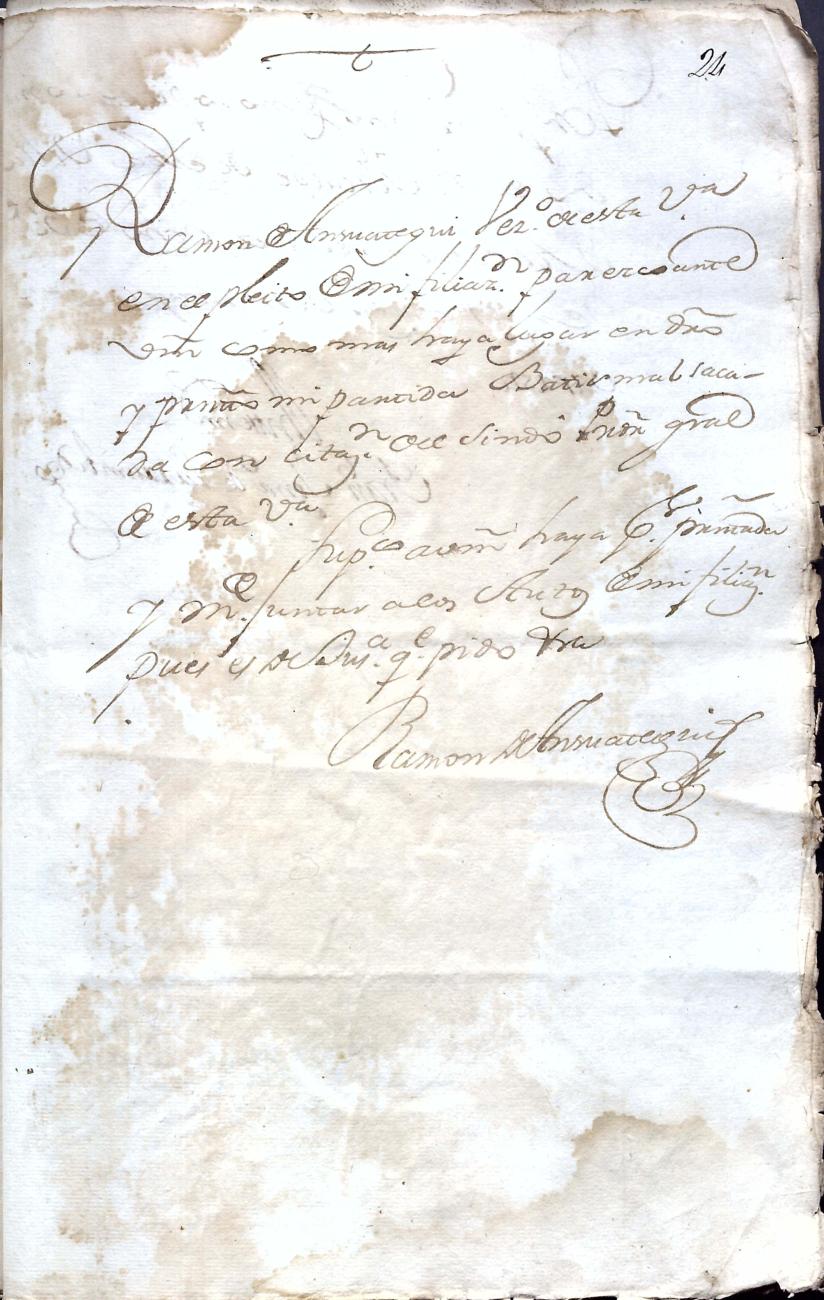 24
Ramon de Ansuategui Vez.º de esta V.ª
en el pleito de mi filiaz.ⁿ parezco ante
Vm̃ como mas haya lugar en dr̃o
y prñto mi partida Batismal saca-
da con citaz.ⁿ del Sindô Prôr gral
de esta V.ª
Sup.co a vm̃ haya p.r prñtada
y m.e juntar a los Autos de mi filiaz.ⁿ
pues es de Jus.ª q.e pido &ra
Ramon de Ansuategui